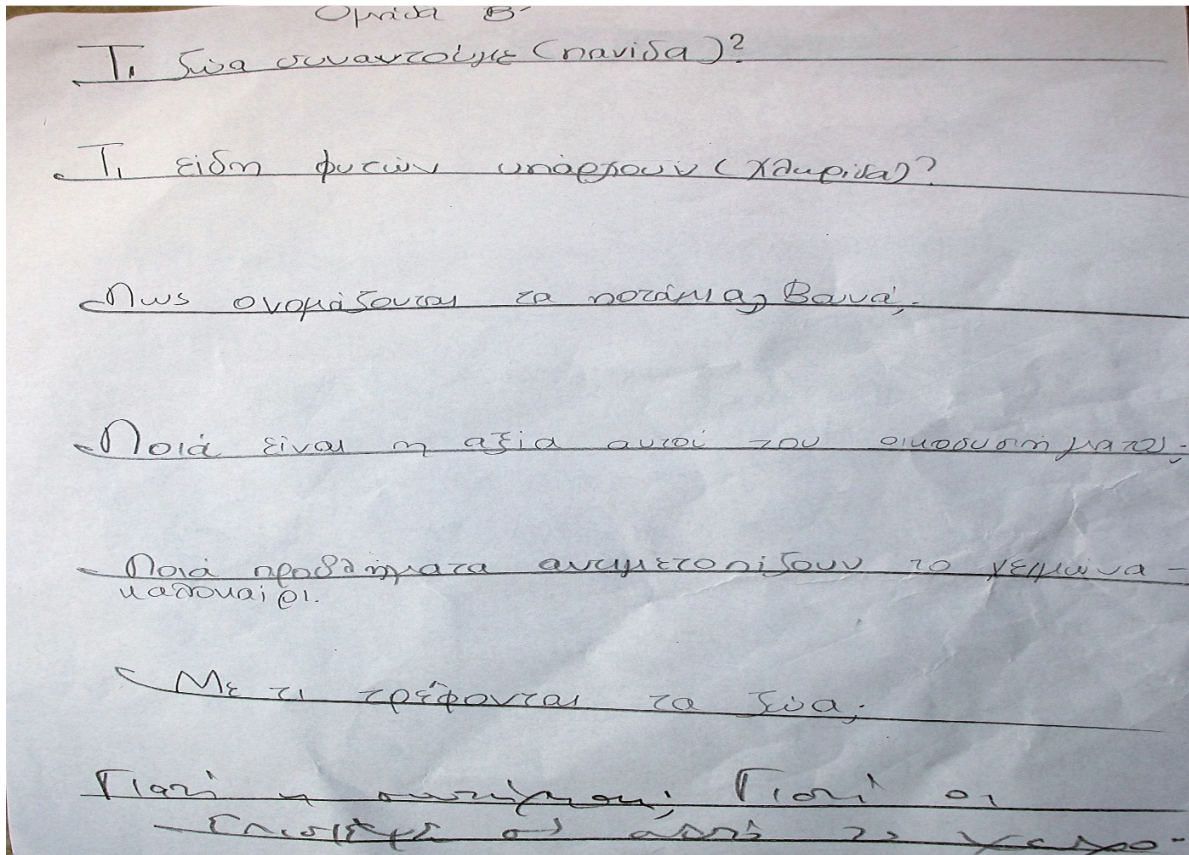 Ομάδα Β'
Τι ζώα συναντούμε (πανίδα)?
Τι είδη φυτών υπάρχουν (χλωρίδα)?
Πως ονομάζονται τα ποτάμια, Βουνά;
Ποιά είναι η αξία αυτού του οικοσυστήματος;
Ποιά προβλήματα αντιμετοπίζουν το χειμώνα -
καλοκαίρι.
Με τι τρέφονται τα ζώα;
Γιατί Γιατί οι
από το